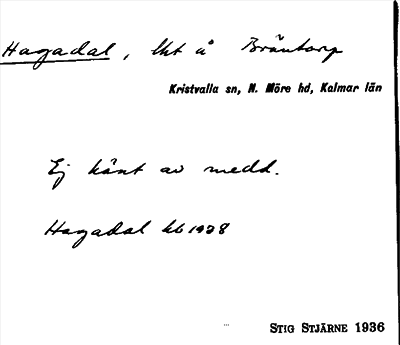 Hagadal, lht å Bräntorp
Kristvalla sn, N. Möre hd, Kalmar län
Ej känt av medd.
Hagadal kb 1928
STIG STJÄRNE 1936